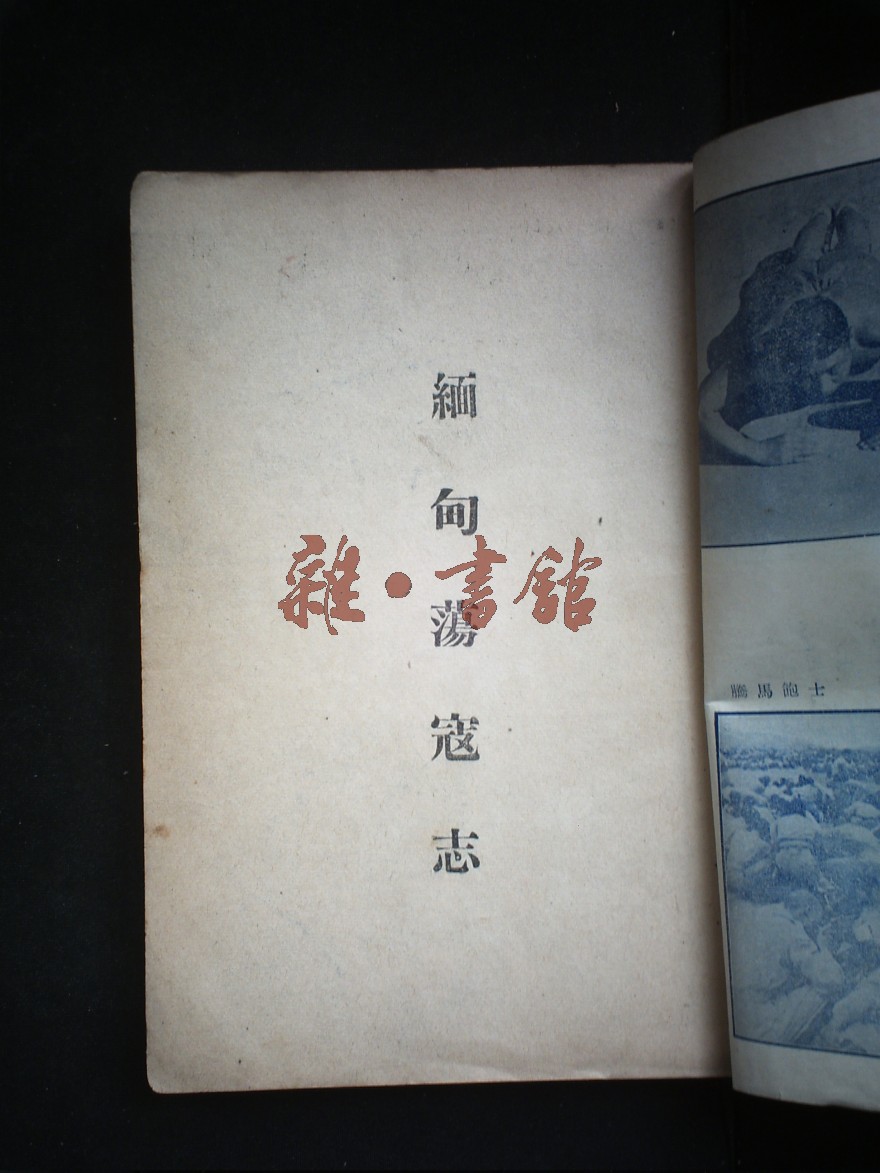 緬甸蕩寇志
雜·書館
士飽馬騰